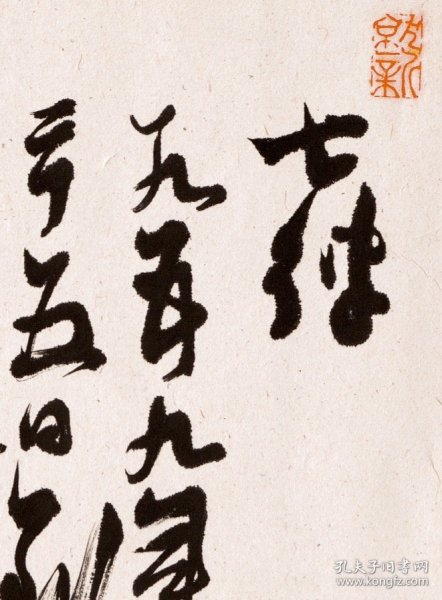 七律
一九五九年
二十五日到
孔夫子旧书网
www.kongfz.com